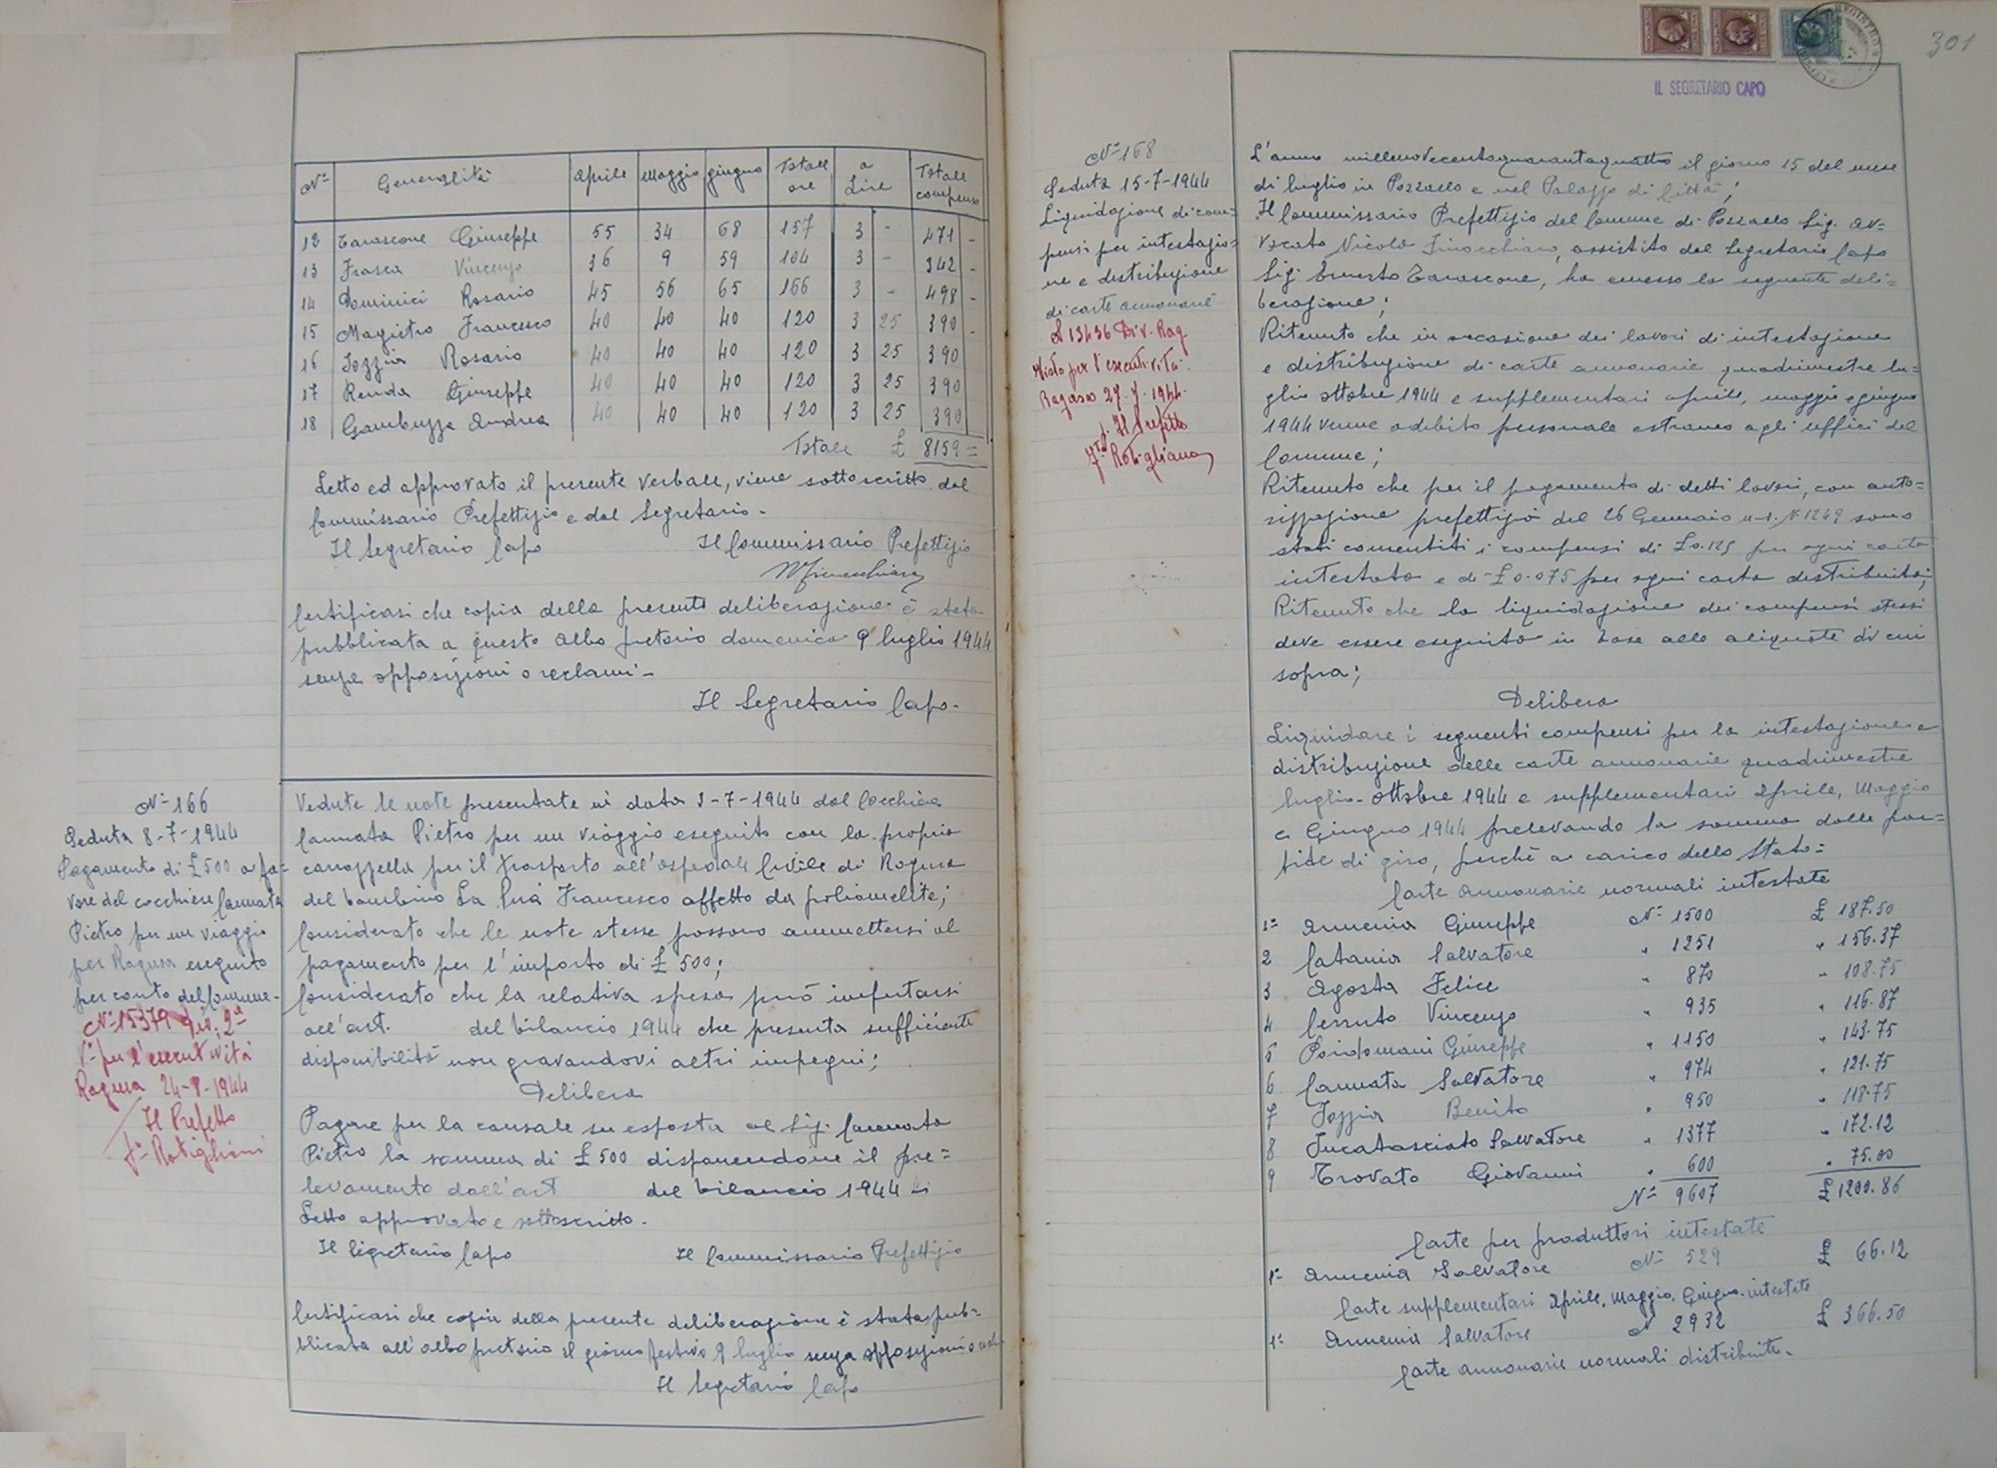 N° Generalità Aprile Maggio giugno Totale ore a Lire Totale compenso
12 Tarascone Giuseppe 55 34 68 157 3 - 471 -
13 Frasca Vincenzo 36 9 59 104 3 - 342 -
14 Dominici Rosario 45 56 65 166 3 - 498 -
15 Magistro Francesco 40 40 40 120 3 25 390 -
16 Iozzia Rosario 40 40 40 120 3 25 390
17 Renda Giuseppe 40 40 40 120 3 25 390
18 Gambuzza Andrea 40 40 40 120 3 25 390
Totale £ 8159=
Letto ed approvato il presente verbale, viene sottoscritto dal
Commissario Prefettizio e dal Segretario.-
Il Segretario Capo Il Commissario Prefettizio
Certificasi che copia della presente deliberazione è stata
pubblicata a questo albo pretorio domenica 9 luglio 1944
senza opposizioni o reclami.-
Il Segretario Capo.
N° 166
Seduta 8-7-1944
Pagamento di £ 500 a fa=
vore del cocchiere Cannata
Pietro per un viaggio
per Ragusa eseguito
per conto del Comune.-
N° 15379 Div. 2ª
V° per l'esecutività
Ragusa 24-8-1944
Il Prefetto
f° Rotigliani
Vedute le note presentate in data 3-7-1944 dal Cocchiere
Cannata Pietro per un viaggio eseguito con la propria
carrozzella per il trasporto all'ospedale Civile di Ragusa
del bambino La Pira Francesco affetto da poliomelite;
Considerato che le note stesse possono ammettersi al
pagamento per l'importo di £ 500;
Considerato che la relativa spesa può imputarsi
all'art. del bilancio 1944 che presenta sufficiente
disponibilità non gravandovi altri impegni;
Delibera
Pagare per la causale su esposta al Sig. Cannata
Pietro la somma di £ 500 disponendone il pre=
levamento dall'art del bilancio 1944
Letto approvato e sottoscritto.
Il Segretario Capo Il Commissario Prefettizio
Certificasi che copia della presente deliberazione è stata pub=
blicata all'albo pretorio il giorno festivo 9 luglio senza opposizioni o
Il Segretario Capo
301
IL SEGRETARIO CAPO
N° 168
Seduta 15-7-1944
Liquidazione di com=
pensi per intestazio=
ne e distribuzione
di carte annonarie
N 13436 Div. Rag.
Visto per l'esecutività.
Ragusa 27.7.1944.
p. Il Prefetto
f° Rotigliano
L'anno millenovecentoquarantaquattro il giorno 15 del mese
di luglio in Pozzallo e nel Palazzo di Città;
Il Commissario Prefettizio del Comune di Pozzallo Sig. av=
vocato Nicola Finocchiaro, assistito dal Segretario Capo
Sig. Ernesto Tarascone, ha emesso la seguente deli=
berazione;
Ritenuto che in occasione dei lavori di intestazione
e distribuzione di carte annonarie quadrimestre lu=
glio ottobre 1944 e supplementari aprile, maggio e giugno
1944 venne adibito personale estraneo agli uffici del
Comune;
Ritenuto che per il pagamento di detti lavori, con auto=
rizzazione prefettizia del 26 Gennaio u.s. N 1249 sono
stati consentiti i compensi di £ 0.125 per ogni carta
intestata e di £ 0.075 per ogni carta distribuita;
Ritenuto che la liquidazione dei compensi stessi
deve essere eseguita in base alle aliquote di cui
sopra;
Delibera
Liquidare i seguenti compensi per la intestazione e
distribuzione delle carte annonarie quadrimestre
luglio-ottobre 1944 e supplementari Aprile, Maggio
e Giugno 1944 prelevando la somma dalle par=
tite di giro, perché a carico dello Stato=
Carte annonarie normali intestate
1° Armenia Giuseppe N° 1500 £ 187.50
2 Catania Salvatore " 1251 " 156.37
3 Agosta Felice " 870 " 108.75
4 Cerruto Vincenzo " 935 " 116.87
5 Poidomani Giuseppe " 1150 " 143.75
6 Cannata Salvatore " 974 " 121.75
7 Iozzia Benito " 950 " 118.75
8 Fucatasciato Salvatore " 1377 " 172.12
9 Trovato Giovanni " 600 " 75.00
N° 9607 £ 1200.86
Carte per produttori intestate
1° Armenia Salvatore N° 529 £ 66.12
Carte supplementari Aprile, Maggio, Giugno intestate
1° Armenia Salvatore N 2932 £ 366.50
Carte annonarie normali distribuite.